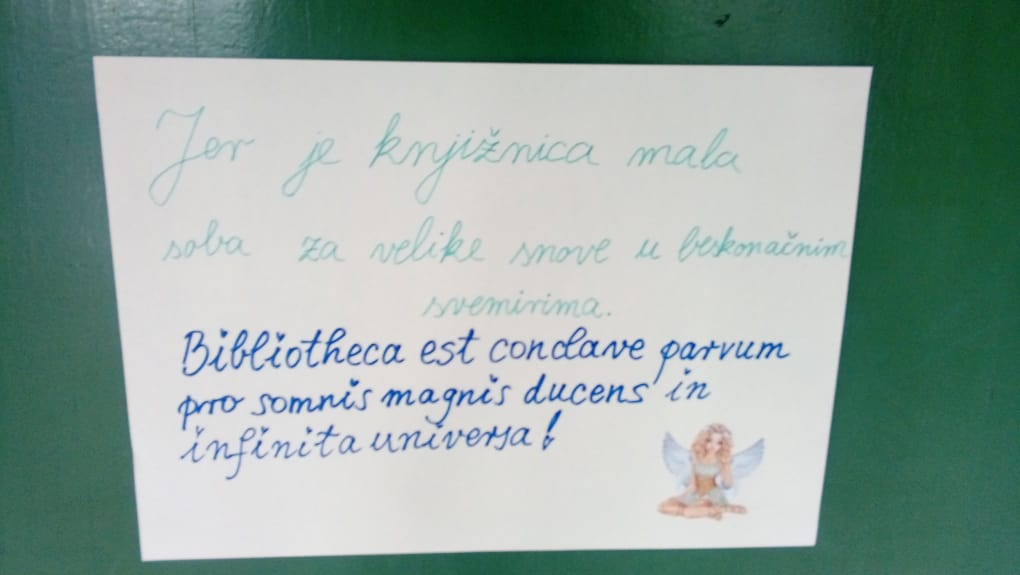 Jer je knjižnica mala
soba za velike snove u beskonačnim
svemirima.
Bibliotheca est conclave parvum
pro somnis magnis ducens in
infinita universa!